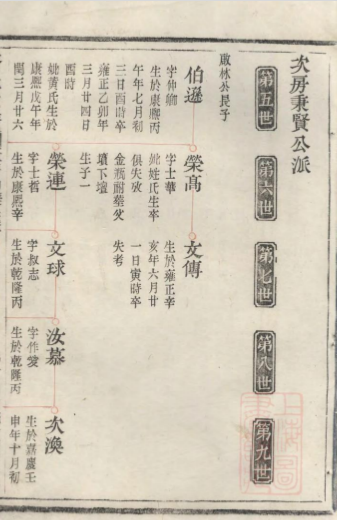 次房秉賢公派
第五世
第六世
第七世
第八世
第九世
啟林公民子
伯遜
字仲卿
生於康熙丙
午年七月初
三日酉時卒
雍正乙卯年
三月廿四日
酉時
妣黃氏生於
康熙戊午年
閏三月廿六
榮高
字士華
妣姓氏生卒
俱失攷
金瓶耐墓癸
墳下壇
生子一
榮連
字士哲
生於康熙辛
文傳
生於雍正辛
亥年六月廿
一日寅時卒
失考
文球
字叔志
生於乾隆丙
汝慕
字作愛
生於乾隆丙
次渙
生於嘉慶壬
申年十月初